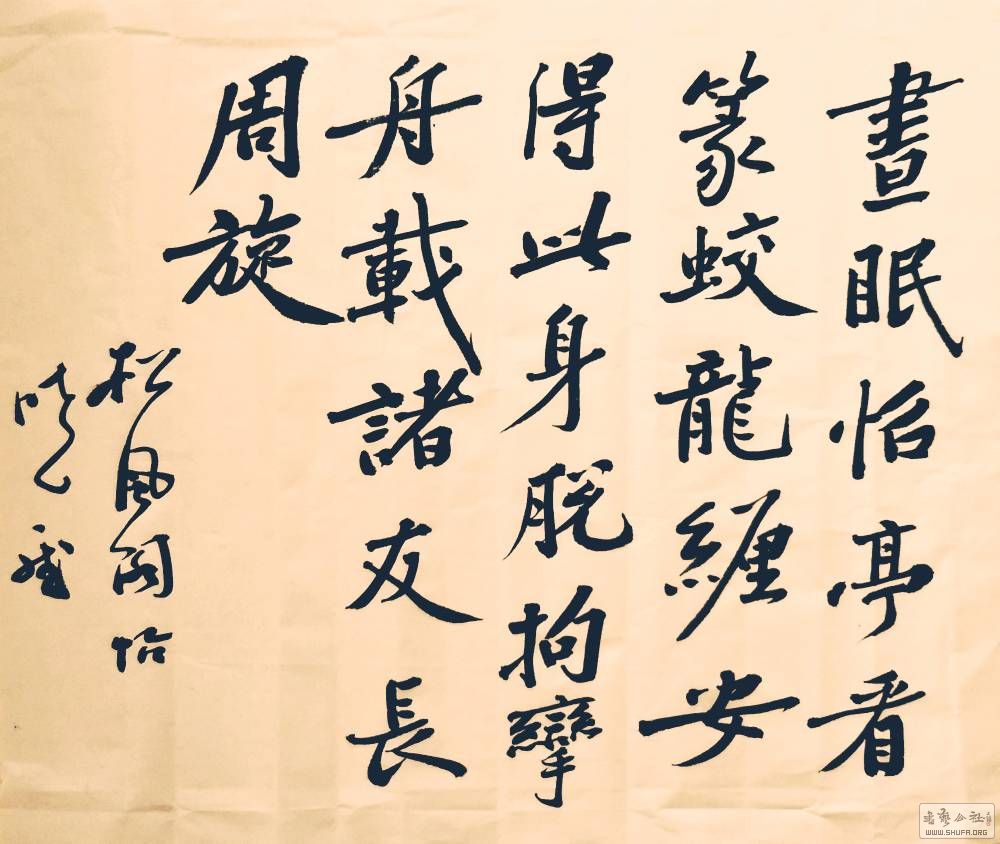 晝眠怡亭看
篆蛟龍纏安
得此身脫拘攣
舟載諸友長
周旋
松風閣帖
書藝公社
WWW.SHUFA.ORG